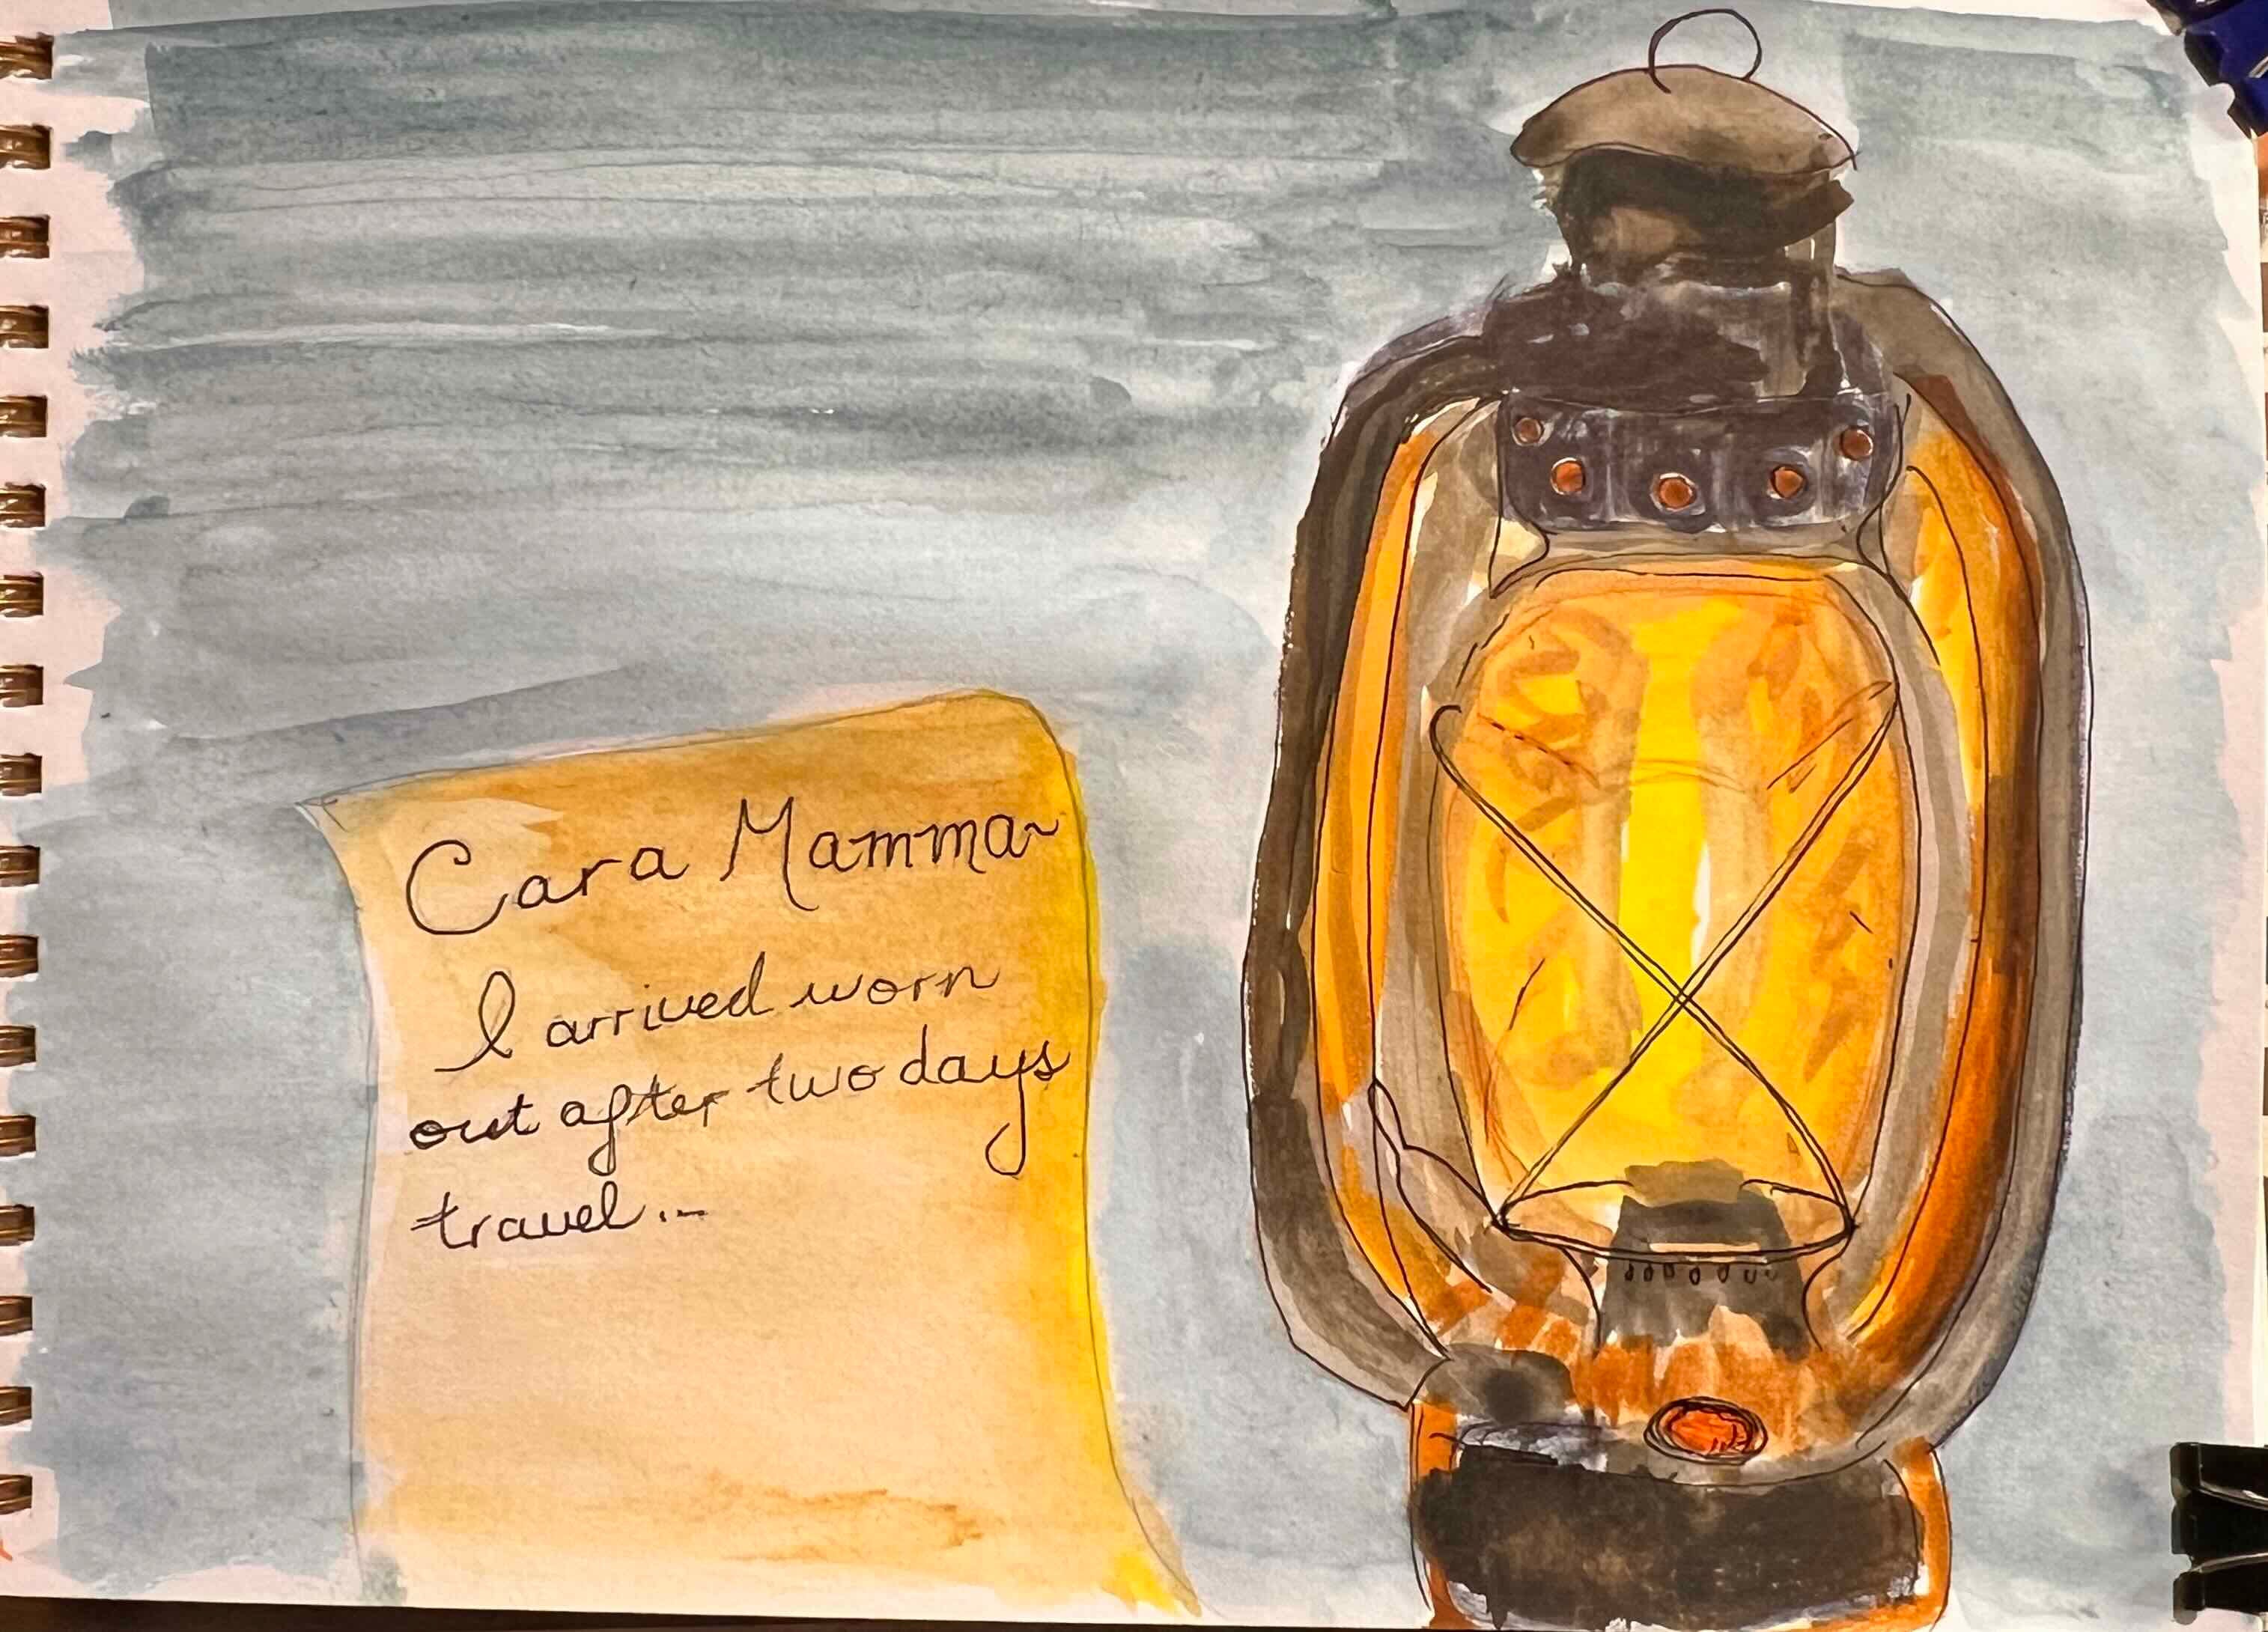 Cara Mamma~
I arrived worn
out after two days
travel...